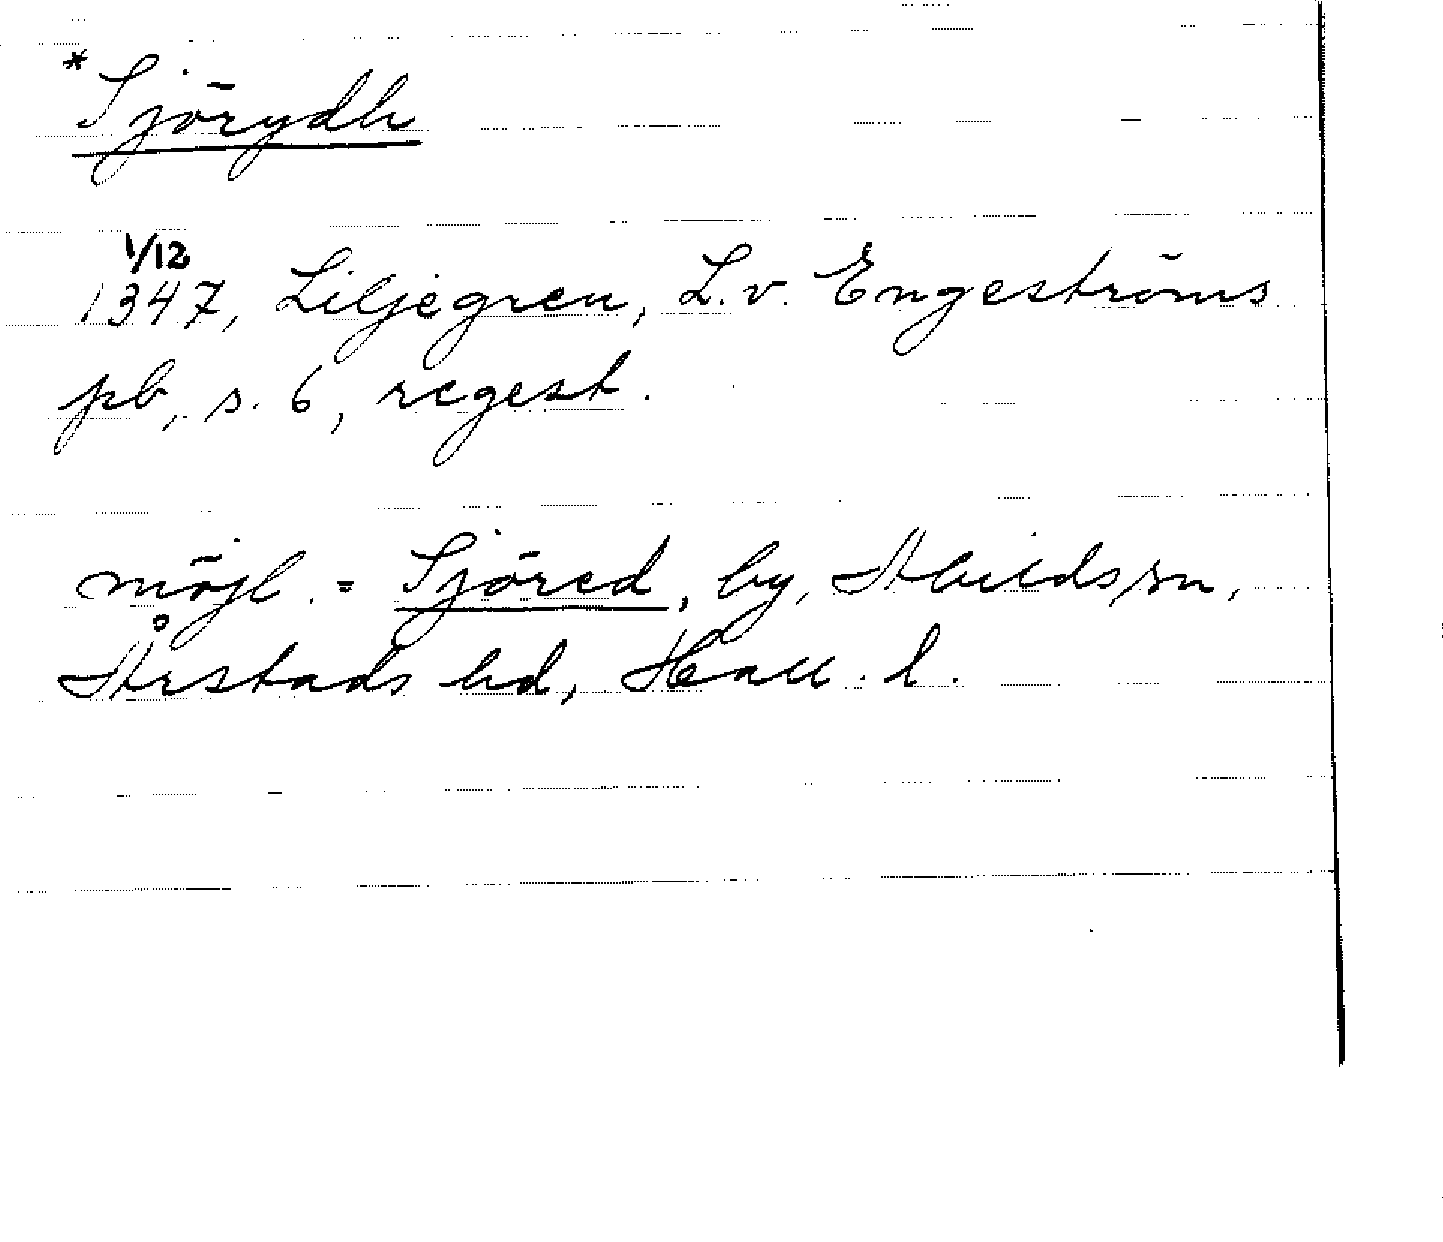 *Sjörydh
1/12
1347, Liljegren, L. v. Engeströms
pb, s. 6, regest.
möjl. = Sjöred, by, Abilds sn,
Årstads hd, Hall. l.